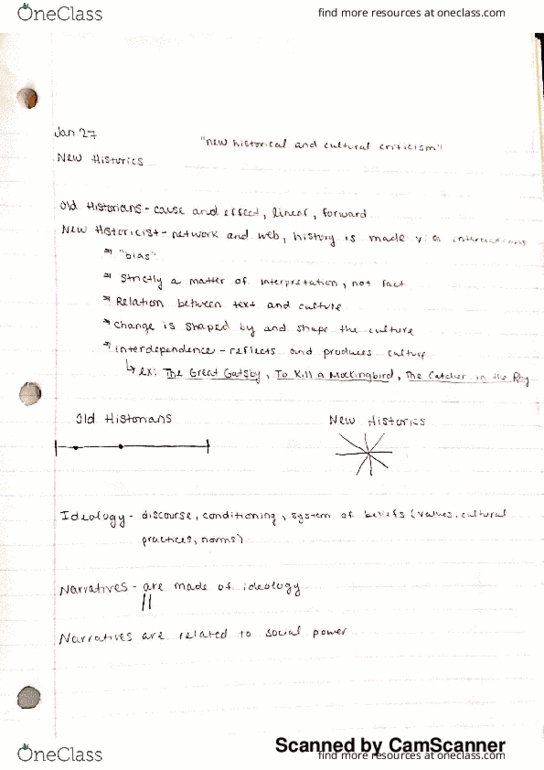 OneClass
find more resources at oneclass.com
Jan 27
"new historical and cultural criticism"
New Historics
Old Historians - cause and effect, linear, forward
New Historicist - network and web, history is made via interactions
* "bias"
* Strictly a matter of interpretation, not fact
* Relation between text and culture
* Change is shaped by and shape the culture
* Interdependence - reflects and produces culture
↳ ex: The Great Gatsby, To Kill a Mockingbird, The Catcher in the Rhy
Old Historians
New Historics
Ideology - discourse, conditioning, system of beliefs (values, cultural
practices, norms)
Narratives - are made of ideology
Narratives are related to social power
Scanned by CamScanner
OneClass
find more resources at oneclass.com